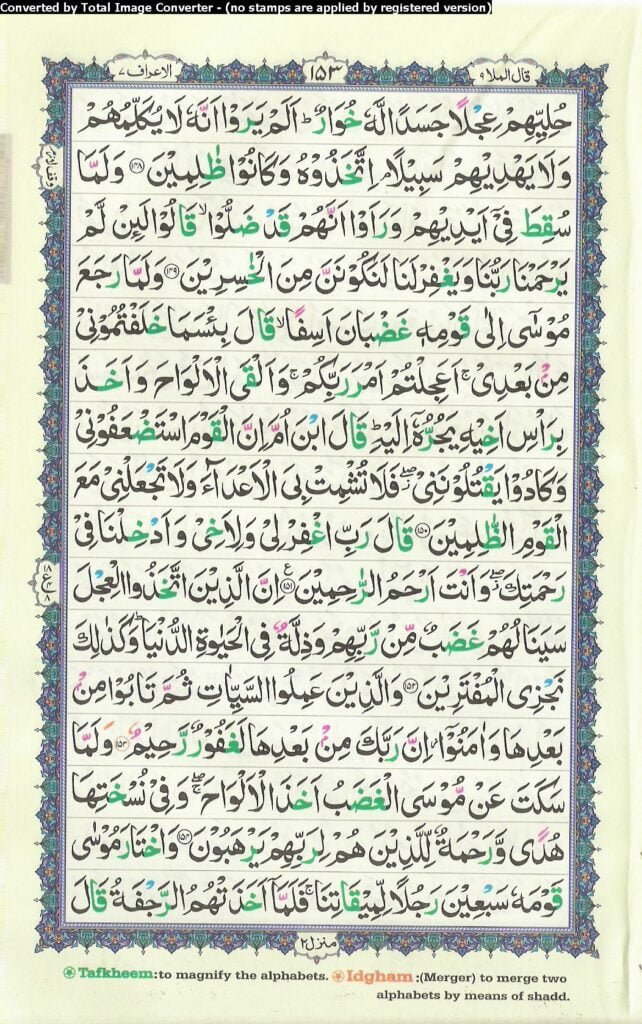 Converted by Total Image Converter - (no stamps are applied by registered version)
قال الملا ٩
١٥٣
الاعراف ٧
حُلِيِّهِمْ عِجْلًا جَسَدًا لَّهٗ خُوَارٌ ؕ اَلَمْ يَرَوْا اَنَّهٗ لَا يُكَلِّمُهُمْ
وَلَا يَهْدِيْهِمْ سَبِيْلًا ۘ اِتَّخَذُوْهُ وَكَانُوْا ظٰلِمِيْنَ ﴿۱۴۸﴾ وَلَمَّا
سُقِطَ فِيْۤ اَيْدِيْهِمْ وَرَاَوْا اَنَّهُمْ قَدْ ضَلُّوْا ۙ قَالُوْا لَىِٕنْ لَّمْ
يَرْحَمْنَا رَبُّنَا وَيَغْفِرْ لَنَا لَنَكُوْنَنَّ مِنَ الْخٰسِرِيْنَ ﴿۱۴۹﴾ وَلَمَّا رَجَعَ
مُوْسٰۤى اِلٰى قَوْمِهٖ غَضْبَانَ اَسِفًا ۙ قَالَ بِئْسَمَا خَلَفْتُمُوْنِيْ
مِنْۢ بَعْدِيْ ۚ اَعَجِلْتُمْ اَمْرَ رَبِّكُمْ ۚ وَاَلْقَى الْاَلْوَاحَ وَاَخَذَ
بِرَاْسِ اَخِيْهِ يَجُرُّهٗۤ اِلَيْهِ ؕ قَالَ ابْنَ اُمَّ اِنَّ الْقَوْمَ اسْتَضْعَفُوْنِيْ
وَكَادُوْا يَقْتُلُوْنَنِيْ ۖ فَلَا تُشْمِتْ بِيَ الْاَعْدَآءَ وَلَا تَجْعَلْنِيْ مَعَ
الْقَوْمِ الظّٰلِمِيْنَ ﴿۱۵۰﴾ قَالَ رَبِّ اغْفِرْ لِيْ وَلِاَخِيْ وَاَدْخِلْنَا فِيْ
رَحْمَتِكَ ۖ وَاَنْتَ اَرْحَمُ الرّٰحِمِيْنَ ﴿۱۵۱﴾ ع اِنَّ الَّذِيْنَ اتَّخَذُوا الْعِجْلَ
سَيَنَالُهُمْ غَضَبٌ مِّنْ رَّبِّهِمْ وَذِلَّةٌ فِي الْحَيٰوةِ الدُّنْيَا ؕ وَكَذٰلِكَ
نَجْزِي الْمُفْتَرِيْنَ ﴿۱۵۲﴾ وَالَّذِيْنَ عَمِلُوا السَّيِّاٰتِ ثُمَّ تَابُوْا مِنْۢ
بَعْدِهَا وَاٰمَنُوْۤا ؗ اِنَّ رَبَّكَ مِنْۢ بَعْدِهَا لَغَفُوْرٌ رَّحِيْمٌ ﴿۱۵۳﴾ وَلَمَّا
سَكَتَ عَنْ مُّوْسَى الْغَضَبُ اَخَذَ الْاَلْوَاحَ ۖ وَفِيْ نُسْخَتِهَا
هُدًى وَّرَحْمَةٌ لِّلَّذِيْنَ هُمْ لِرَبِّهِمْ يَرْهَبُوْنَ ﴿۱۵۴﴾ وَاخْتَارَ مُوْسٰى
قَوْمَهٗ سَبْعِيْنَ رَجُلًا لِّمِيْقَاتِنَا ۚ فَلَمَّاۤ اَخَذَتْهُمُ الرَّجْفَةُ قَالَ
منزل ٢
Tafkheem:to magnify the alphabets. Idgham :(Merger) to merge two
alphabets by means of shadd.